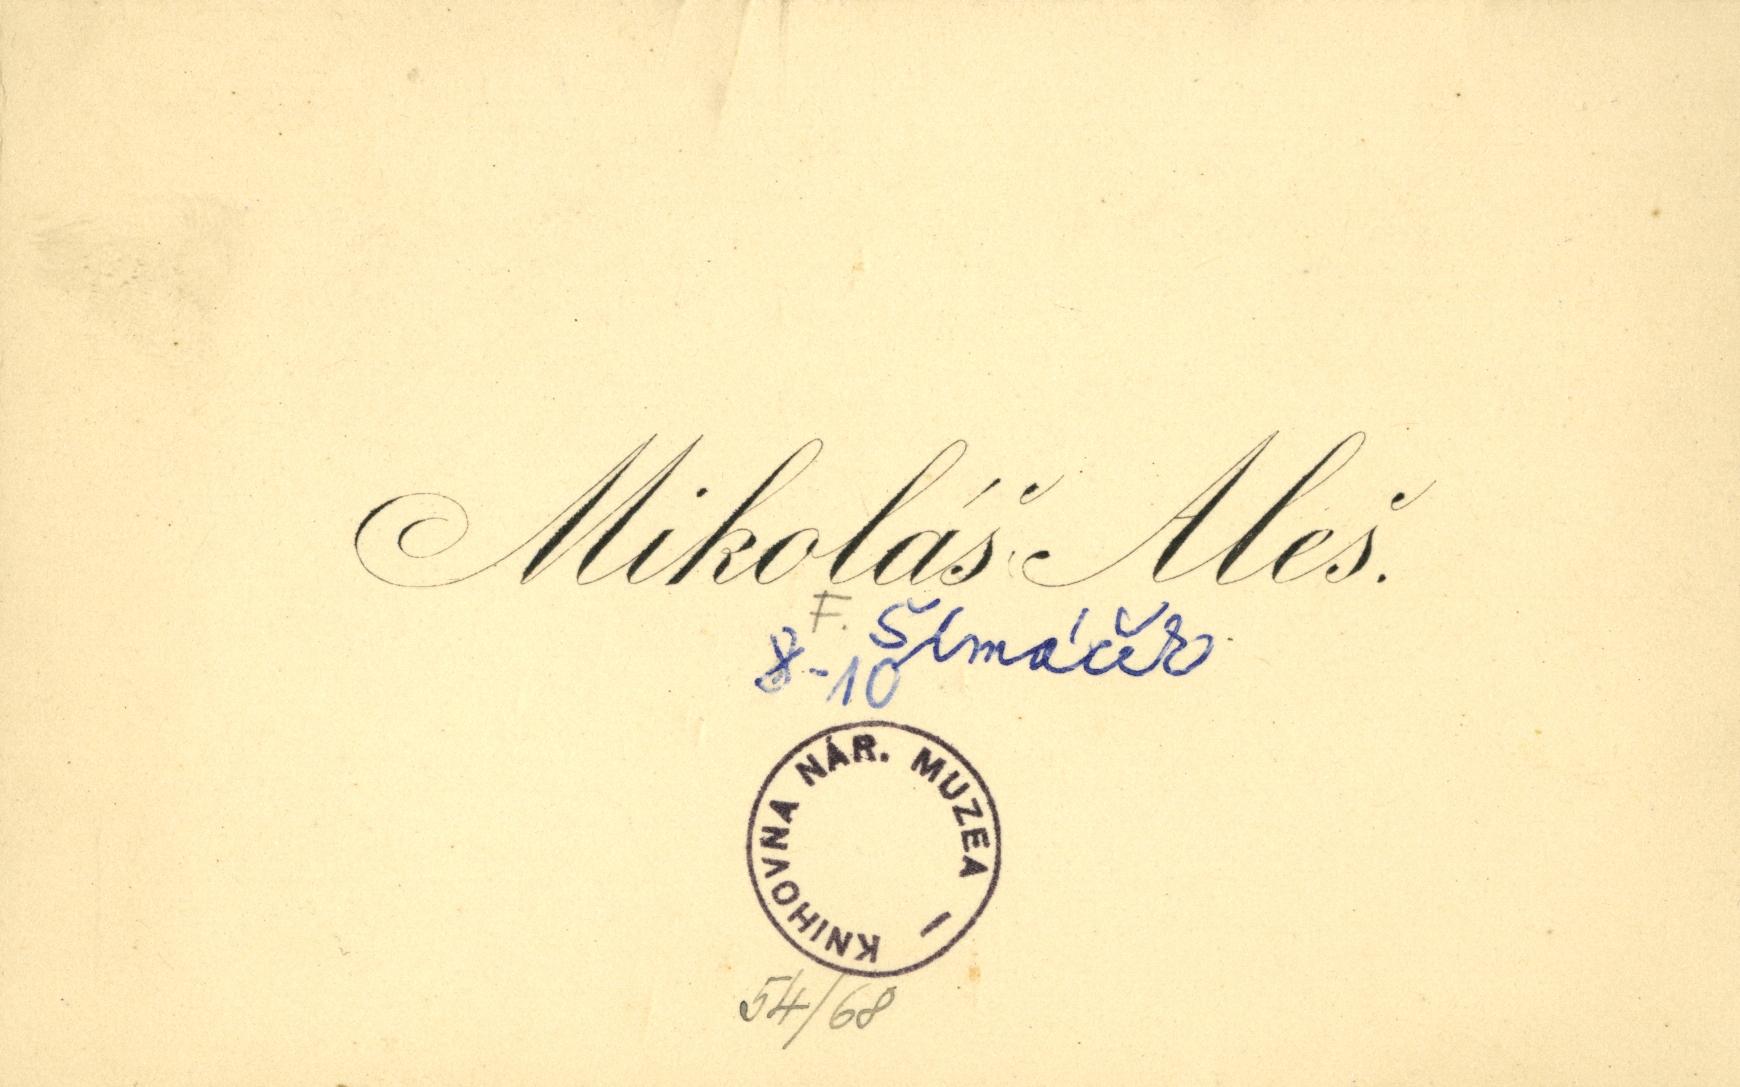 Mikoláš Aleš.
F. Šimáček
8-10
KNIHOVNA NÁR. MUZEA
54/68